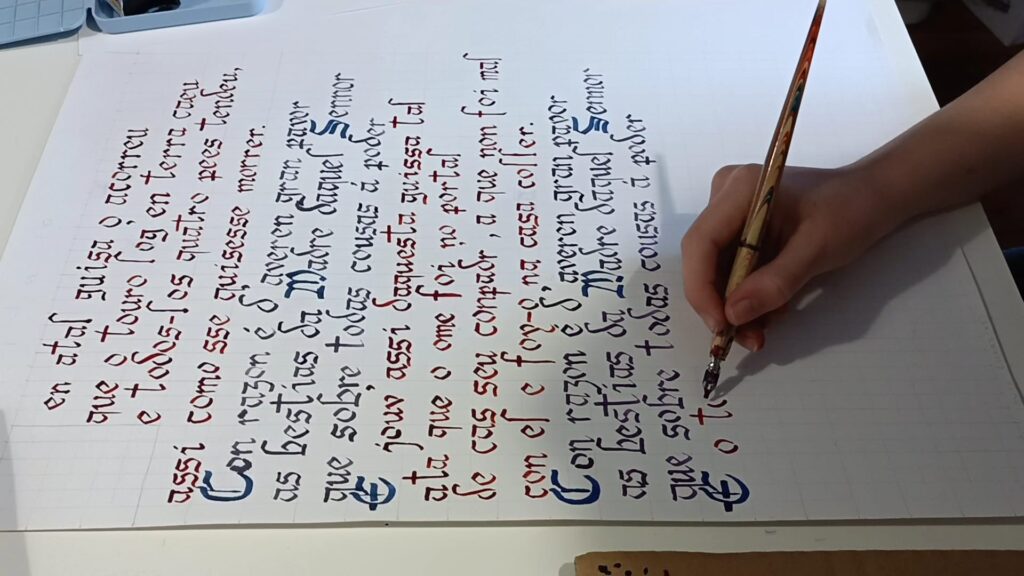 en atal guisa o acorreu
que o touro log' en terra caeu
e todos-los quatro pees tendeu,
assi como sse quisesse morrer.
Con razon é d' averen gran pavor
as bestias da Madre daquel Sennor
que sobre todas cousas á poder
E jouv assi daquesta guissa tal
ata que o ome foi no portal
de cas seu conpadr', a que non foi mal
con el e foy-o na casa coller.
Con razon é d' averen gran pavor
as bestias da Madre daquel Sennor
que sobre todas cousas á poder
E o t